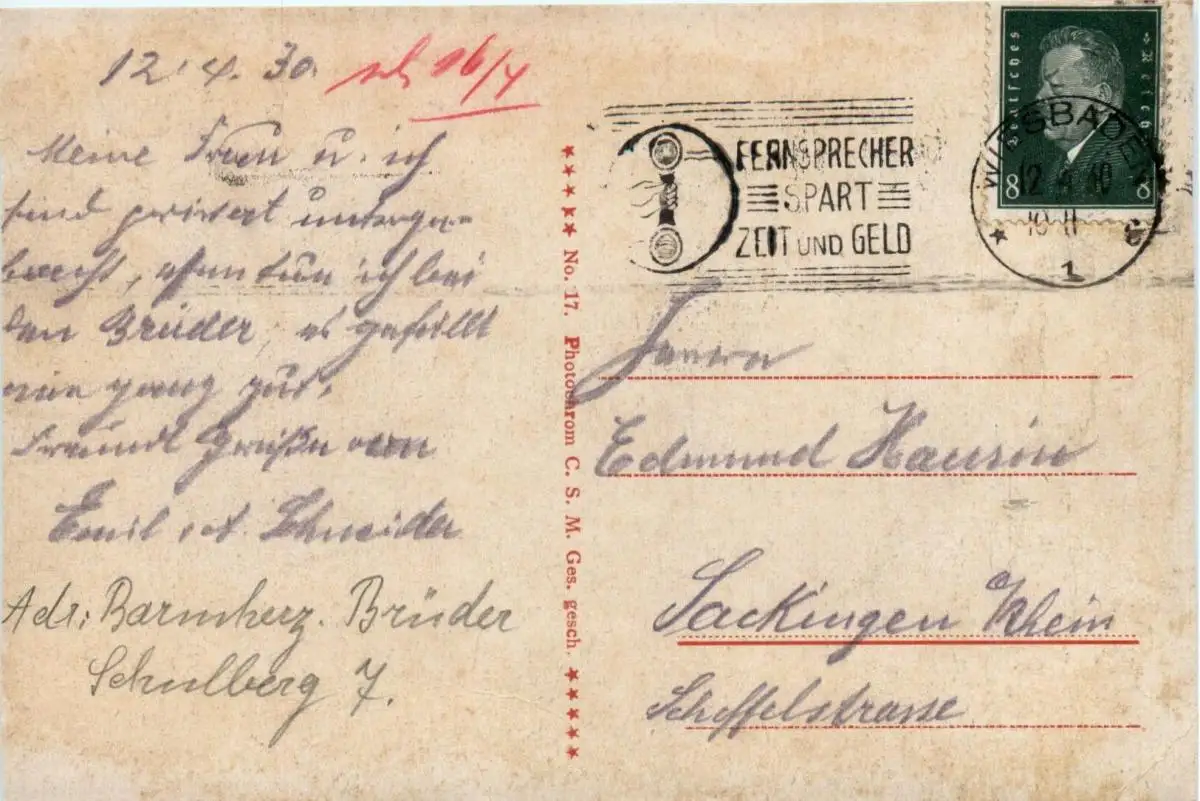 12.4.30. 16/4
Meine Frau u. ich
sind privat unterge-
bracht, essen tun ich bei
den Brüder, es gefällt
mir ganz gut.
Freundl Grüße von
Emil Schneider
Adr: Barmherz. Brüder
Schulberg 7.
★★★★★ No. 17. Photochrom C. S. M. Ges. gesch. ★★★★★
FERNSPRECHER
SPART
ZEIT UND GELD
Deutsches Reich
8 8
WIESBADEN
12 4 30
10-11
1
Herrn
Edmund Hausin
Sackingen Rhein
Scheffelstrasse